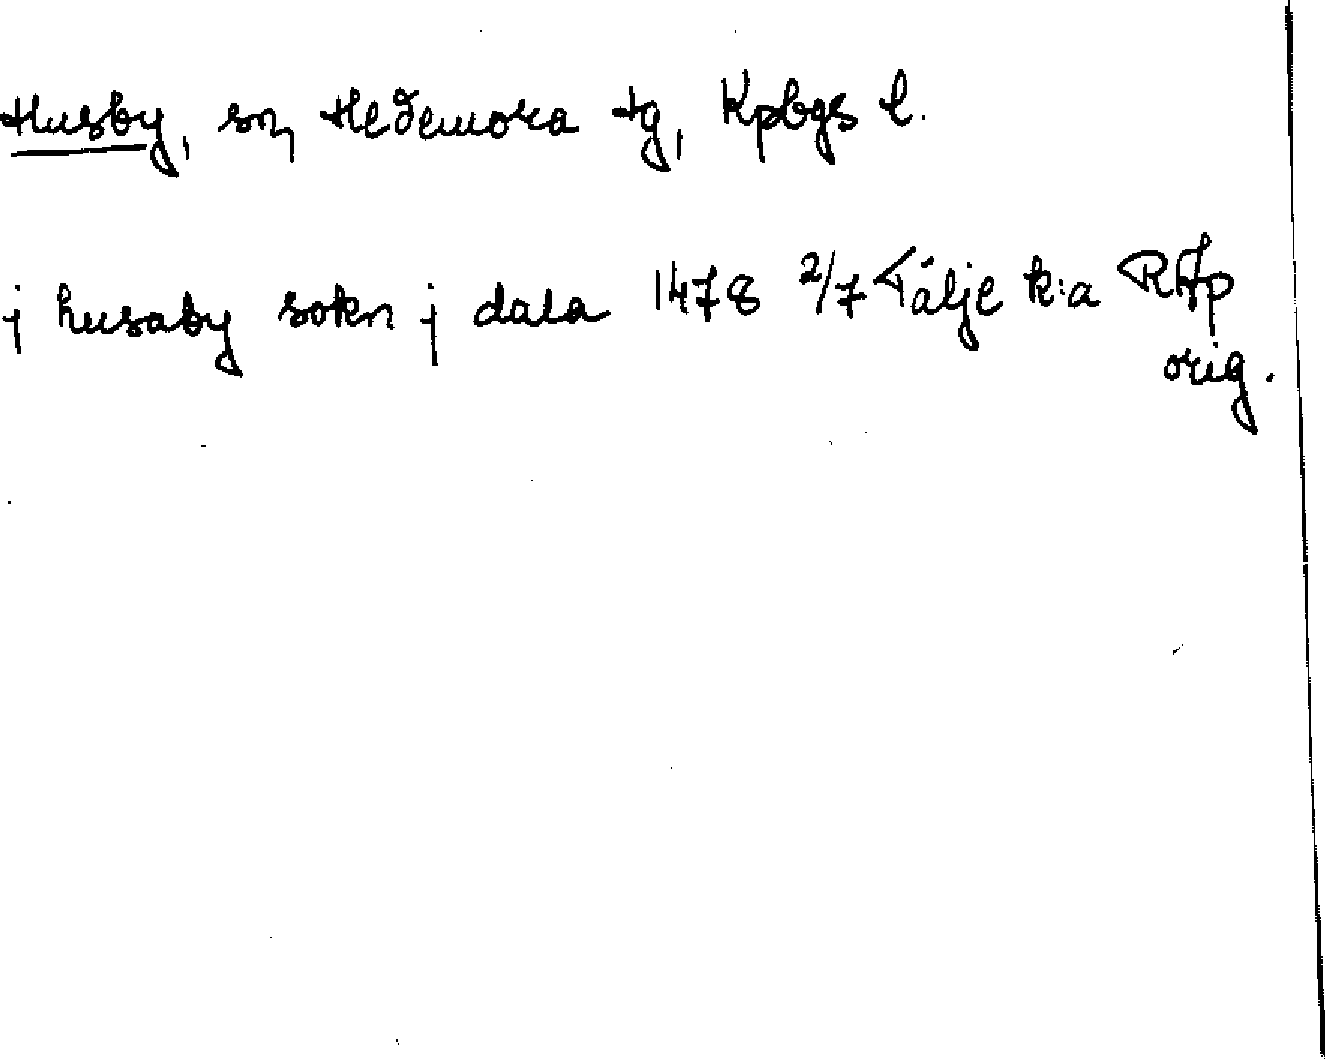 Husby, sn, Hedemora tg, Kpbgs l.
j husaby sokn j dala 1478 2/7 Tälje k:a RAp
orig.